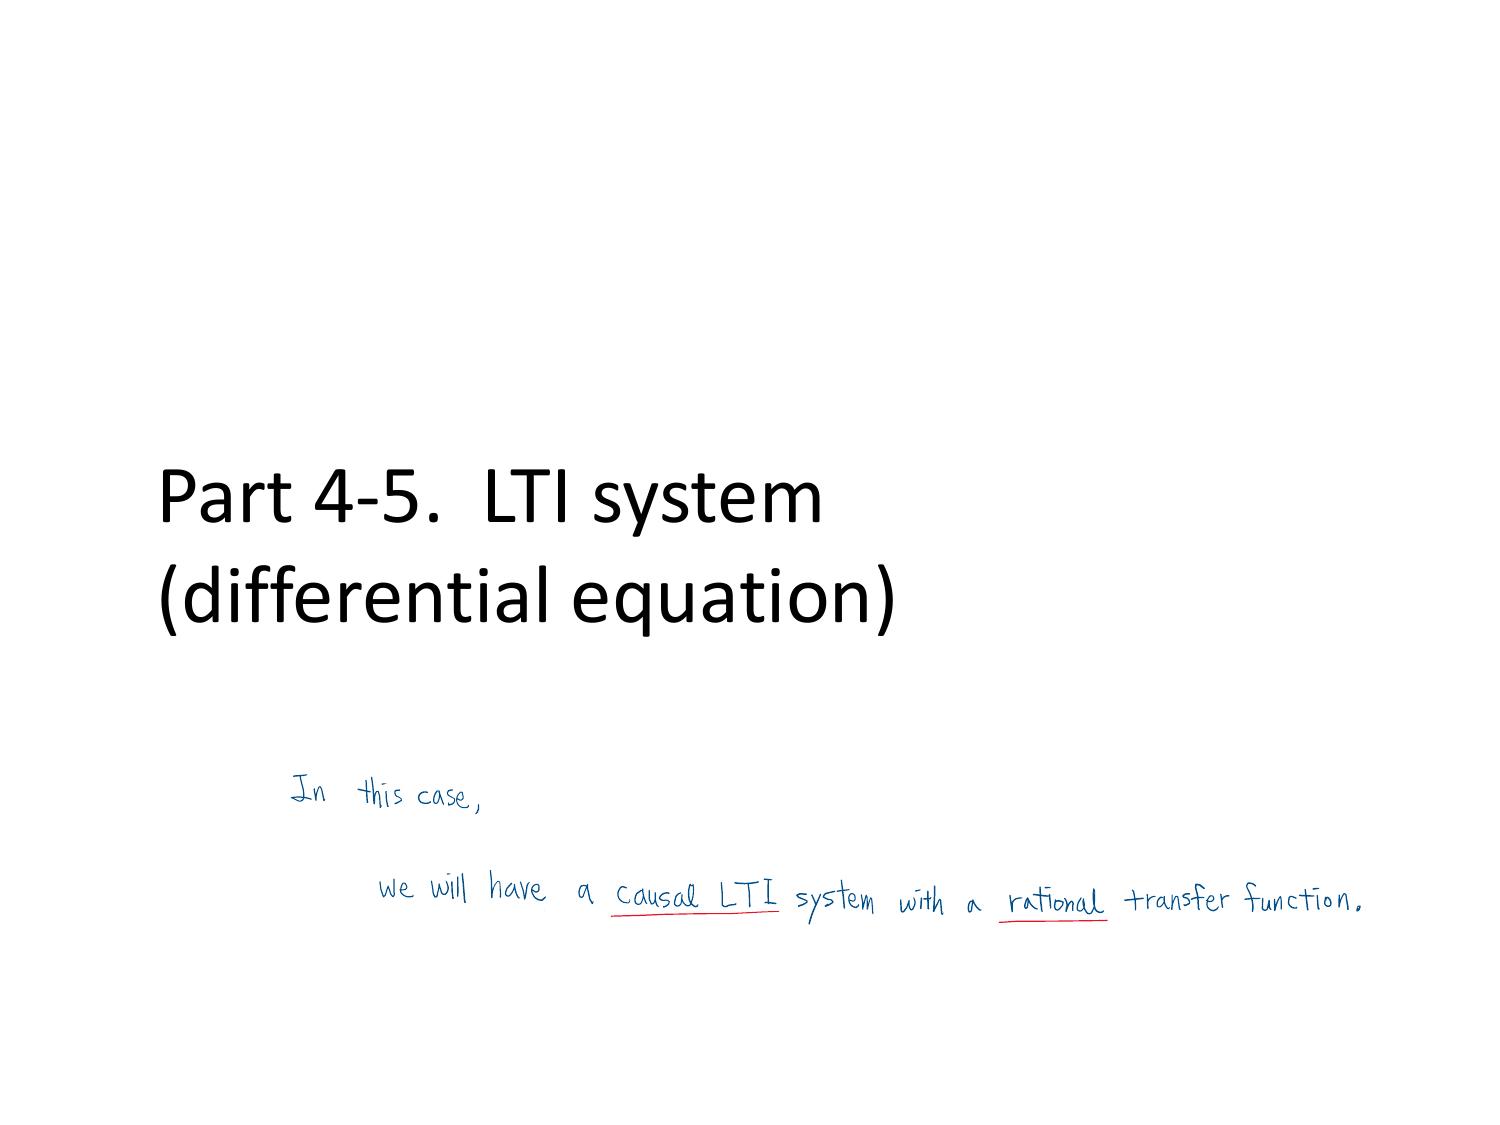 Part 4-5. LTI system
(differential equation)
In this case,
we will have a causal LTI system with a rational transfer function.